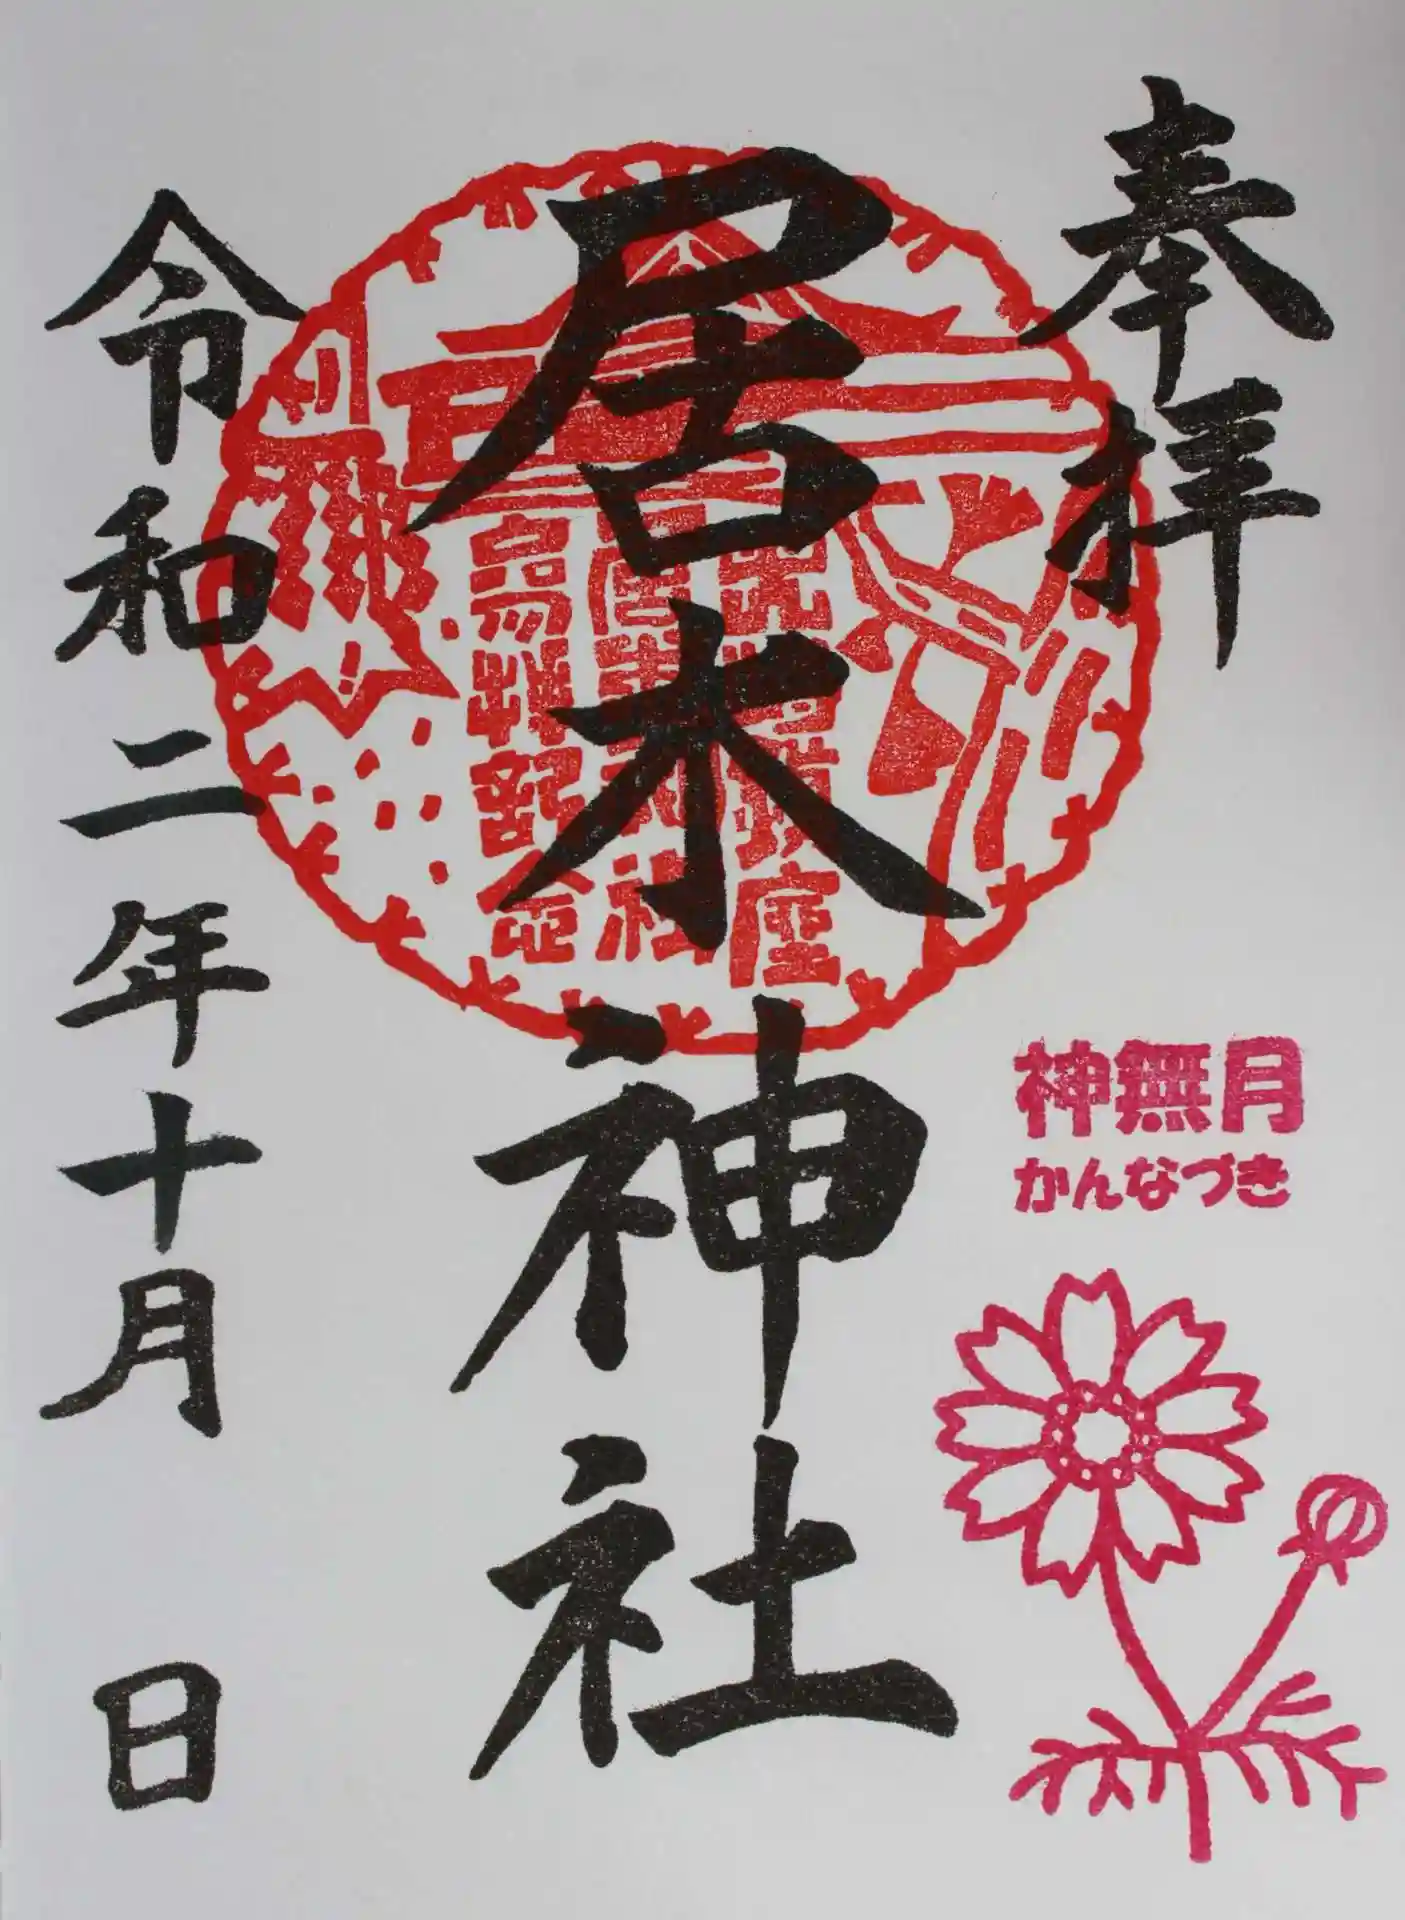 奉拝
神無月
かんなづき
居木神社
居木神社
令和二年十月 日